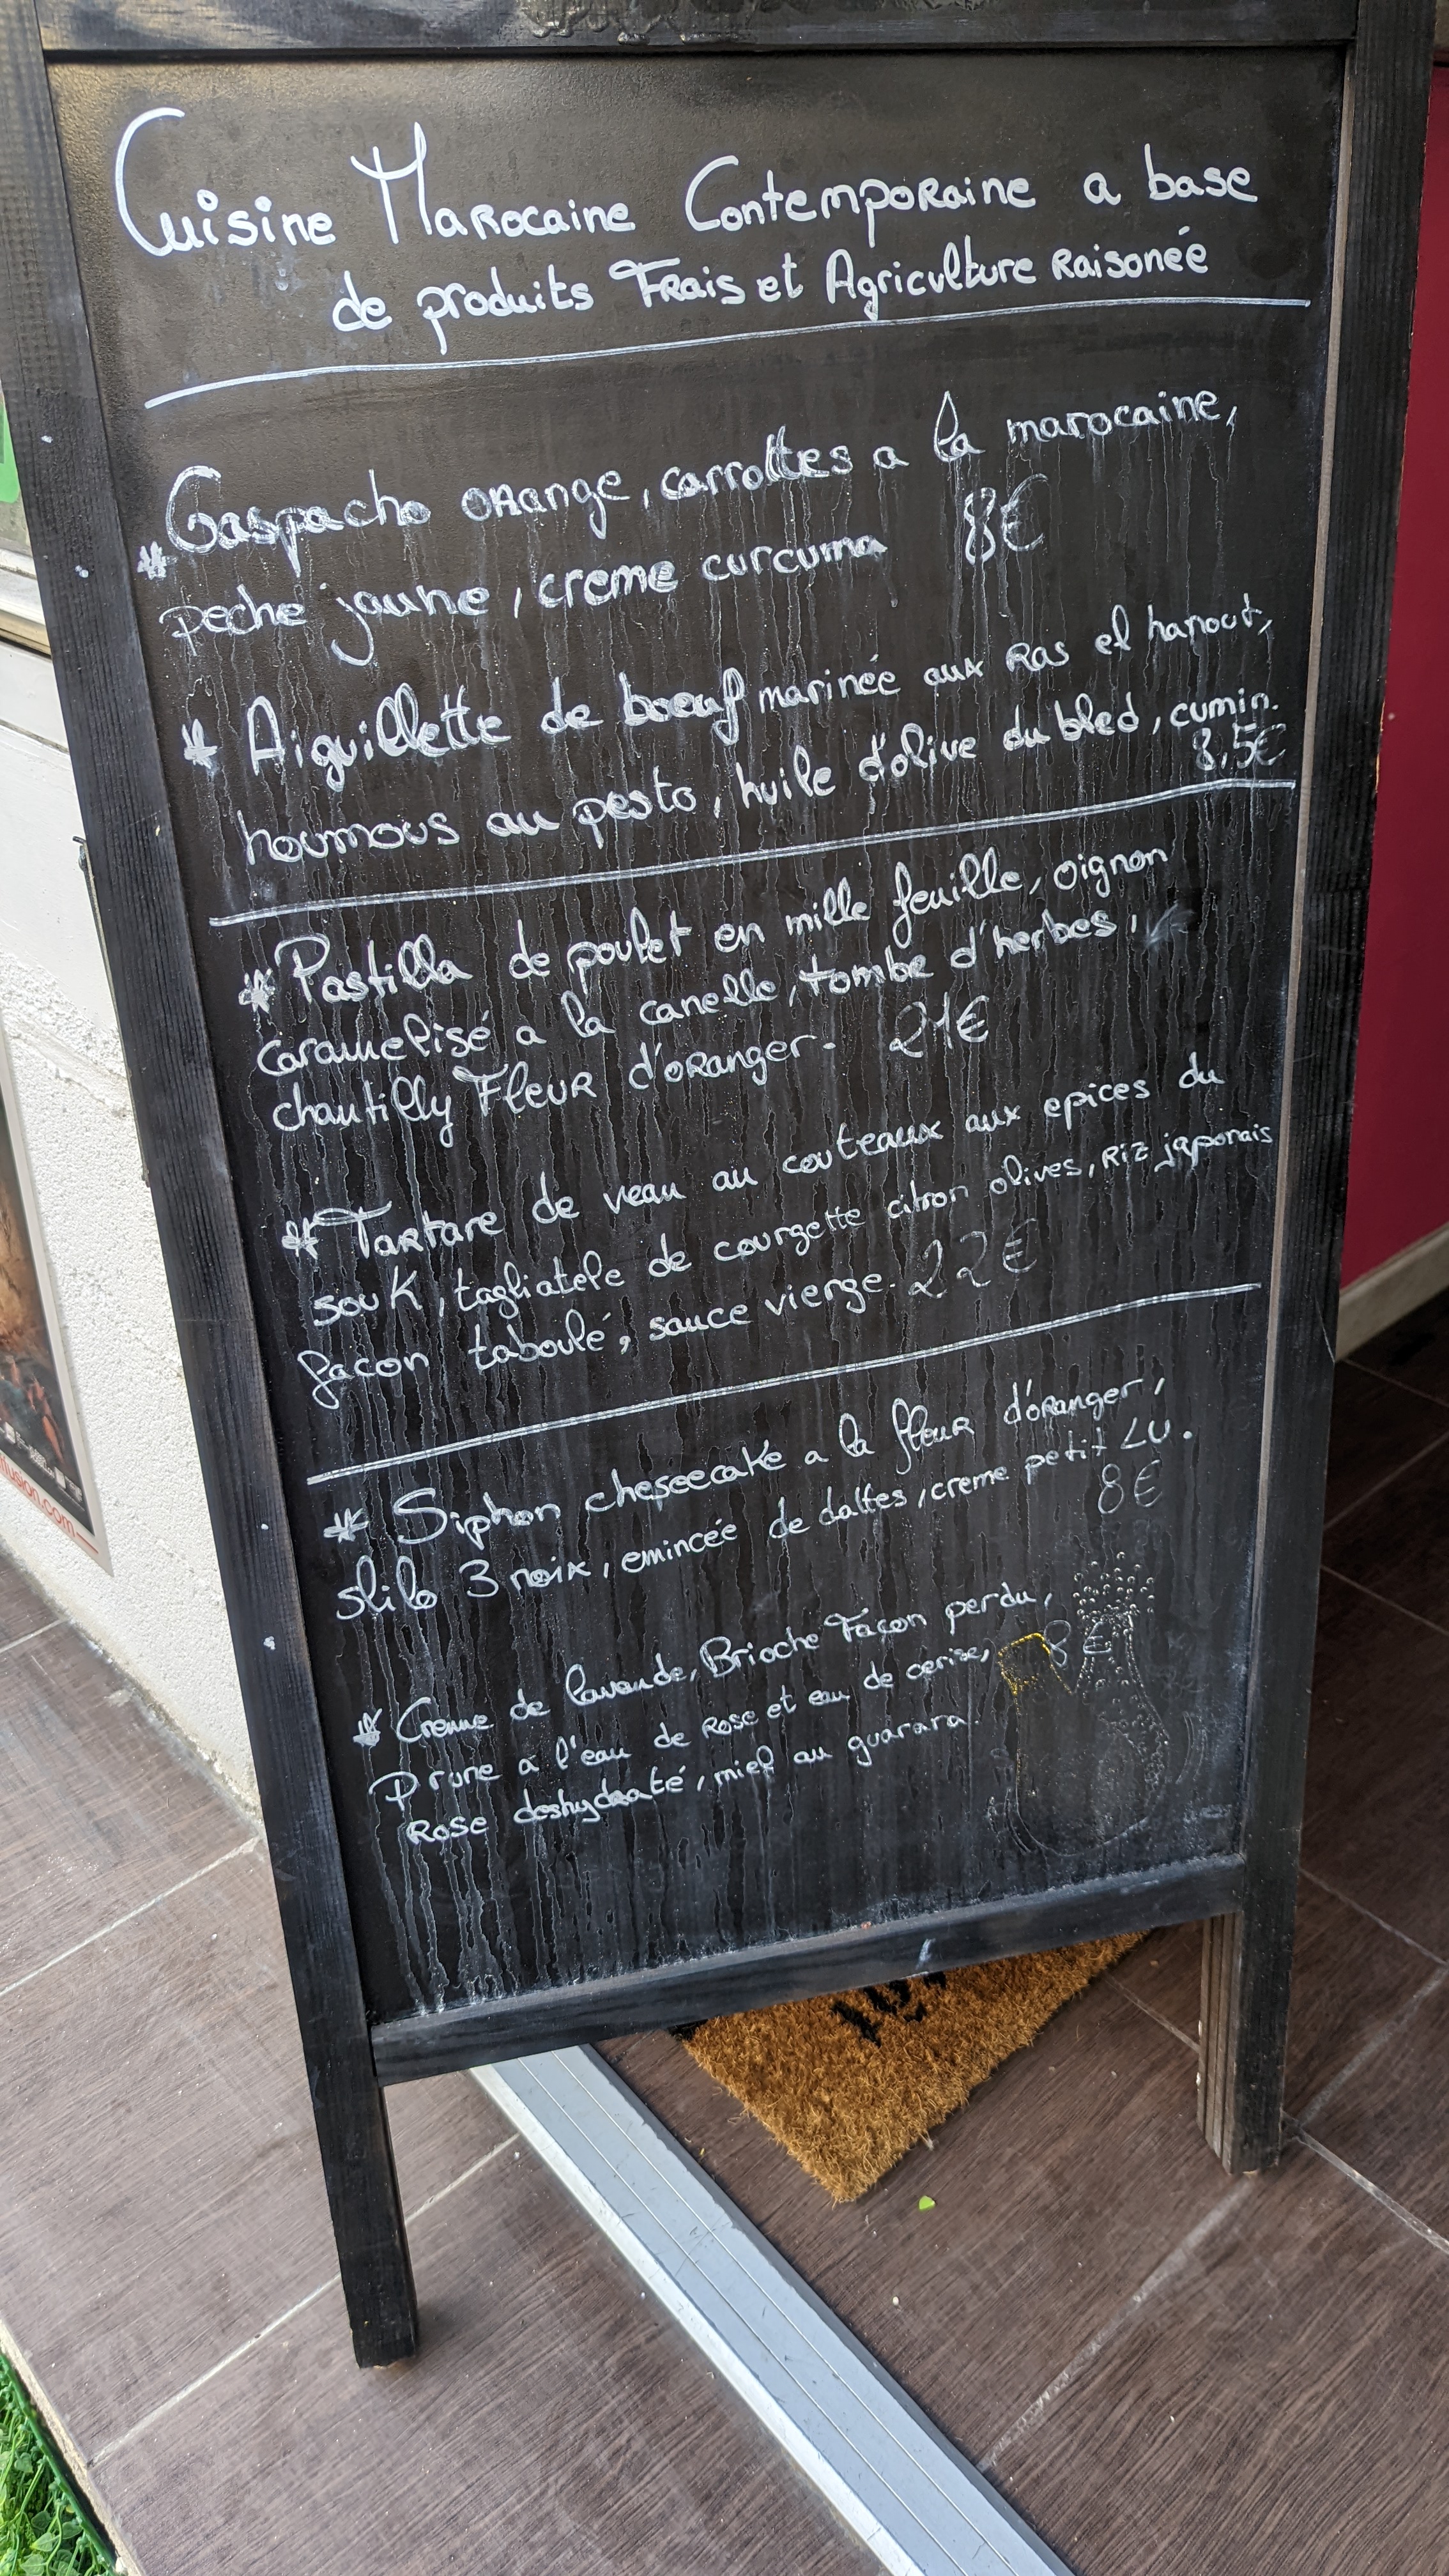 Cuisine Marocaine Contemporaine a base
de produits Frais et Agriculture Raisonée
* Gaspacho orange, carrottes a la marocaine,
peche jaune, creme curcuma 8€
* Aiguillette de boeuf marinée aux Ras el hanout,
houmous au pesto, huile d'olive du bled, cumin.
8,5€
* Pastilla de poulet en mille feuille, oignon
caramelisé a la canelle, tombe d'herbes,
chantilly Fleur d'oranger. 21€
* Tartare de veau au couteaux aux epices du
souk, tagliatele de courgette citron olives, Riz japonais
facon taboulé, sauce vierge. 22€
* Siphon cheseecake a la fleur d'oranger,
slilo 3 noix, emincée de dattes, creme petit LU.
8€
* Creme de lavande, Brioche Facon perdu,
Prune a l'eau de Rose et eau de cerise, 8€
Rose deshydraté, miel au guarara.
fusion.com